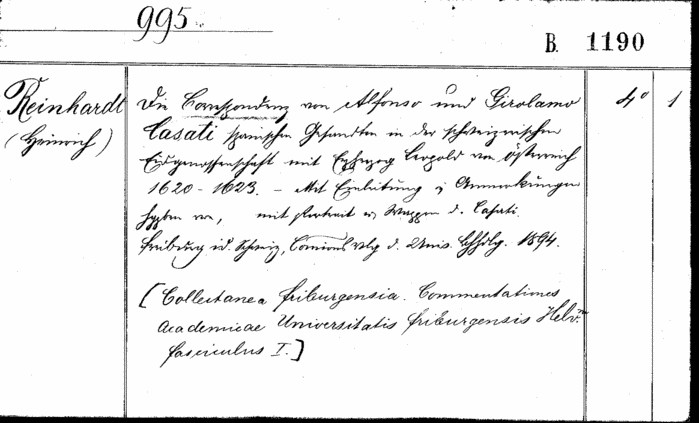 995
B. 1190
Reinhardt
(Heinrich)
Die Correspondenz von Alfonso und Girolamo
Casati spanischen Gesandten in der schweizerischen
Eidgenossenschaft mit Erzherzog Leopold von Österreich
1620 - 1623. - Mit Einleitung & Anmerkungen
hggben von, mit Portrait & Wappen d. Casati.
Freiburg i/d. Schweiz, Comiss. Vlg d. Univ. Bhhdlg. 1894.
[Collectanea friburgensia. Commentationes
Academicae Universitatis friburgensis Helv.
fasciculus I.]
4°
1